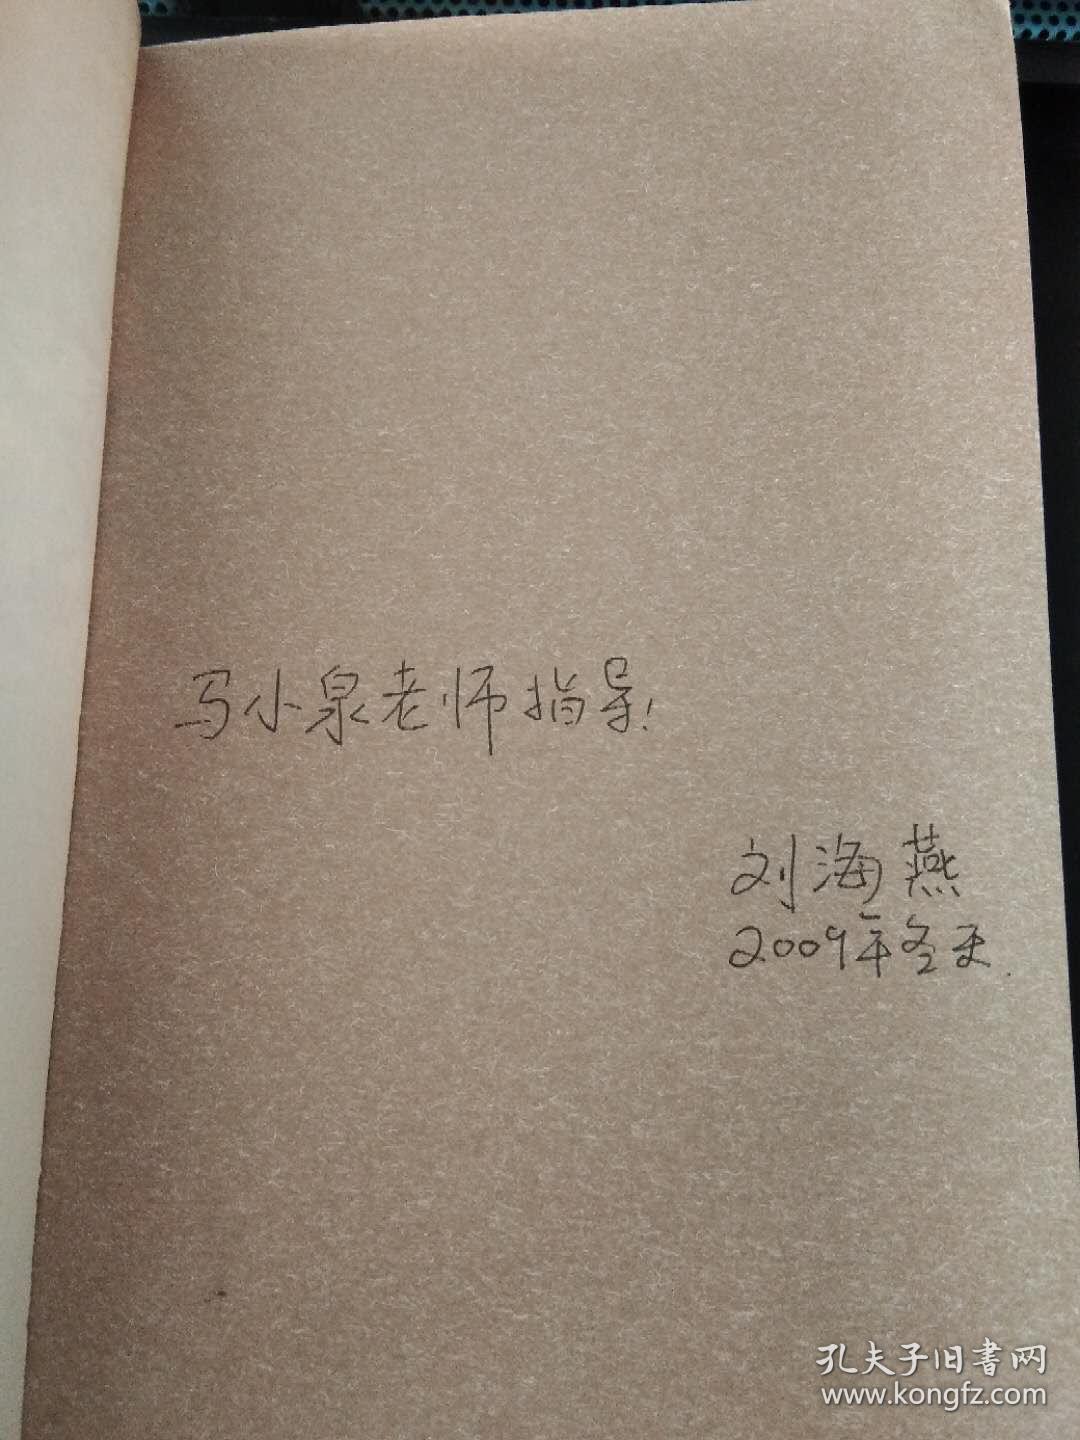 马小泉老师指导!
刘海燕
2009年冬天.
孔夫子旧書网
www.kongfz.com